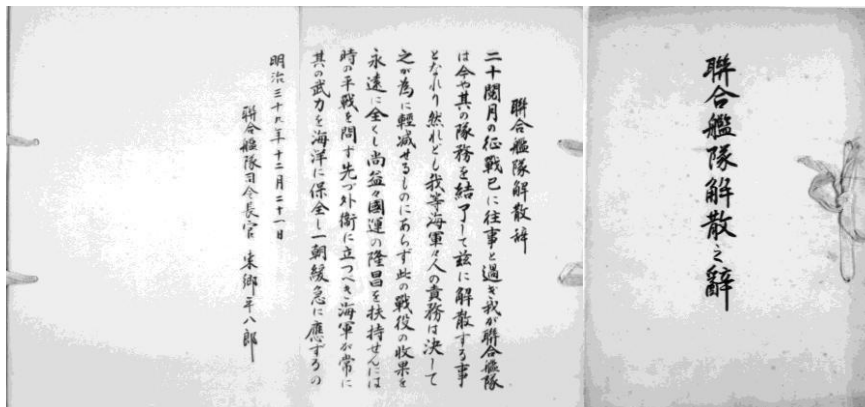 聯合艦隊解散之辭
聯合艦隊解散辞
二十閲月の征戰已に往事と過ぎ我が聯合艦隊
は今や其の隊務を結了して茲に解散する事
となれり然れども我等海軍々人の責務は決して
之が為に輕減せるものにあらず此の戰役の收果を
永遠に全くし尚益々國運の隆昌を扶持せんには
時の平戰を問す先づ外衝に立つべき海軍が常に
其の武力を海洋に保全し一朝緩急に應するの
明治三十八年十二月二十一日
聯合艦隊司令長官 東郷平八郎